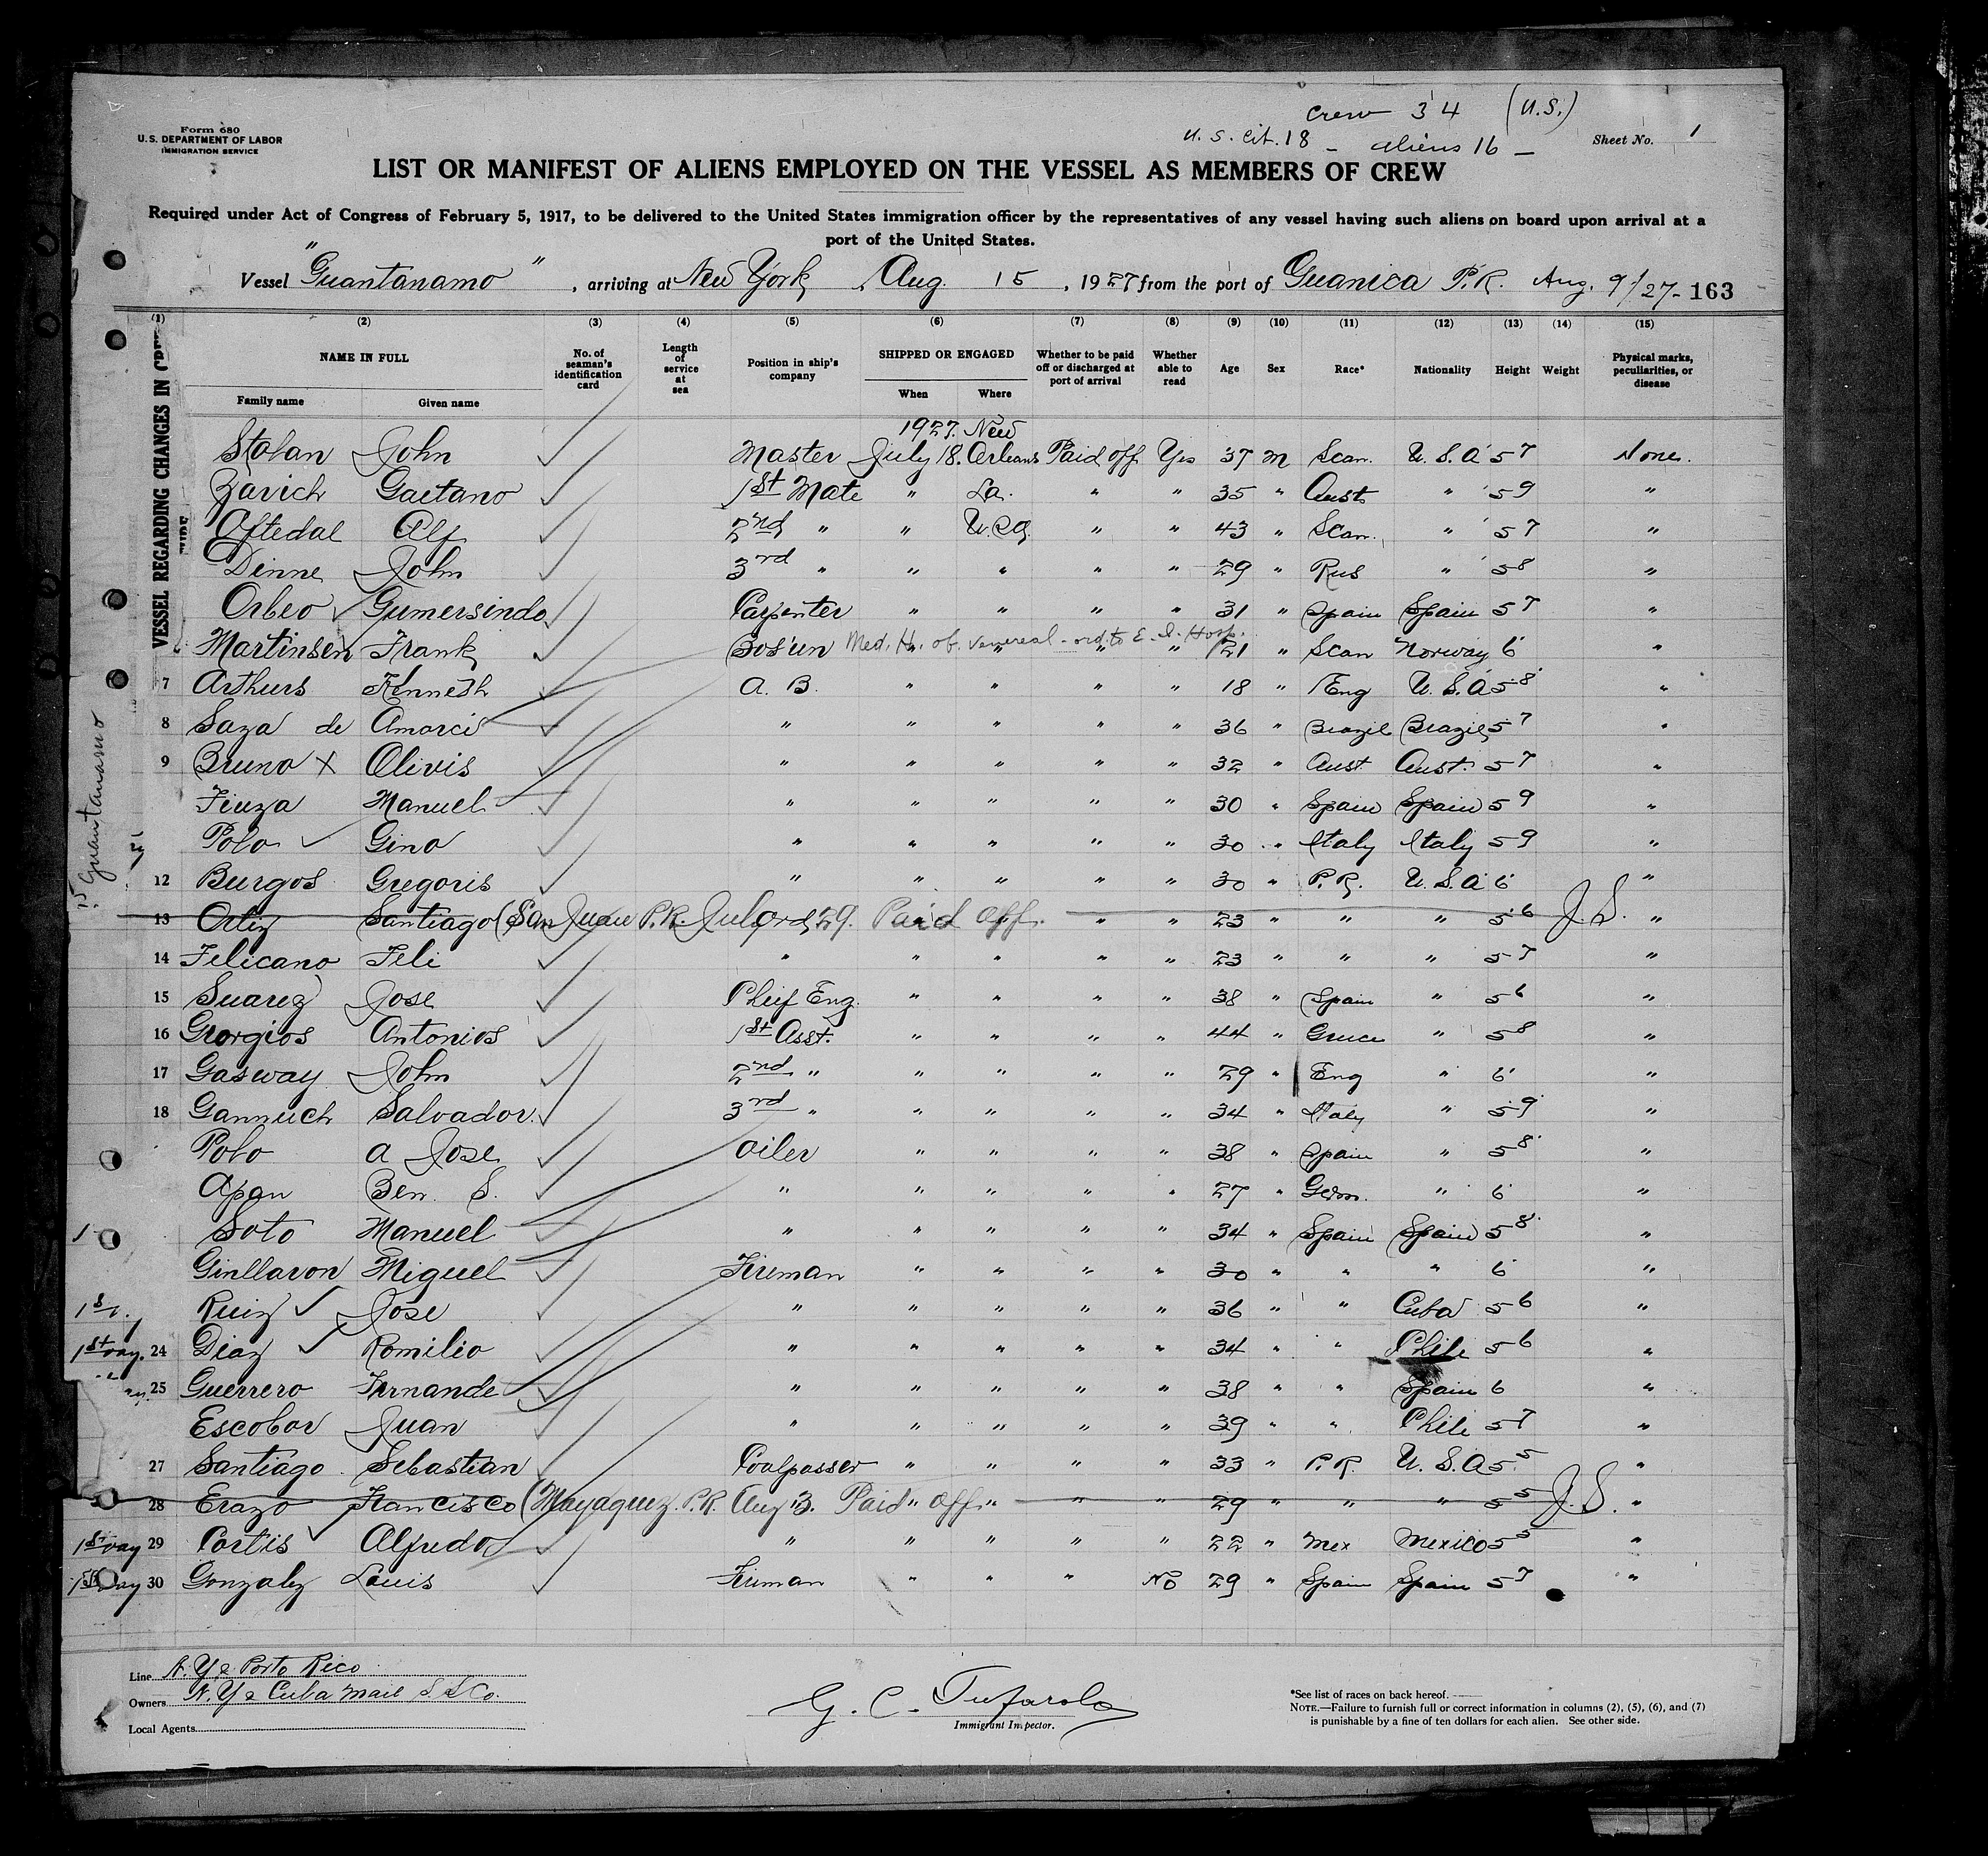 Crew 34 (U.S.)
U.S. Cit. 18 - Aliens 16 -
Form 680
U.S. DEPARTMENT OF LABOR
IMMIGRATION SERVICE
Sheet No. 1
LIST OR MANIFEST OF ALIENS EMPLOYED ON THE VESSEL AS MEMBERS OF CREW
Required under Act of Congress of February 5, 1917, to be delivered to the United States immigration officer by the representatives of any vessel having such aliens on board upon arrival at a
port of the United States.
Vessel "Guantanamo", arriving at New York, Aug. 15, 1927 from the port of Guanica P.R. Aug. 9/27- 163
(1) (2) (3) (4) (5) (6) (7) (8) (9) (10) (11) (12) (13) (14) (15)
VESSEL REGARDING CHANGES IN
NAME IN FULL
Family name Given name
No. of seaman's identification card
Length of service at sea
Position in ship's company
SHIPPED OR ENGAGED
When Where
Whether to be paid off or discharged at port of arrival
Whether able to read
Age Sex Race* Nationality Height Weight
Physical marks, peculiarities, or disease
1927. New
Stolan John Master July 18. Orleans Paid off Yes 37 M Scan. U.S.A 5 7 None.
Zavich Gaetano 1st Mate " La. " " 35 " Aust " 5 9 "
Oftedal Alf 2nd " " U.S.A. " " 43 " Scan. " 5 7 "
Dinne John 3rd " " " " " 29 " Rus " 5 8 "
Orbeo Gumersindo Carpenter " " " " 31 " Spain Spain 5 7 "
Martinsen Frank Bos'un Med. H. of. venereal - ord. to E. I. Hosp. 21 " Scan Norway 6 "
7 Arthurs Kenneth A. B. " " " " 18 " Eng U.S.A 5 8 "
8 Saza de Amorci " " " " " 36 " Brazil Brazil 5 7 "
9 Bruno X Olivis " " " " " 32 " Aust. Aust. 5 7 "
Fiuza Manuel " " " " " 30 " Spain Spain 5 9 "
Polo Gino " " " " " 30 " Italy Italy 5 9 "
12 Burgos Gregoris " " " " " 30 " P.R. U.S.A 6 "
13 Ortiz Santiago (San Juan P.R. July 29. Paid off. " " 23 " " " 5 6 J.S. "
14 Felicano Feli " " " " " 23 " " " 5 7 "
15 Suarez Jose Chief Eng. " " " " 38 " Spain " 5 6 "
16 Georgios Antonios 1st Asst. " " " " 44 " Greece " 5 8 "
17 Gasway John 2nd " " " " " 29 " Eng " 6 "
18 Gannuch Salvador. 3rd " " " " " 34 " Italy " 5 9 "
Polo a Jose Oiler " " " " 38 " Spain " 5 8 "
Apan Ben. S. " " " " " 27 " Germ. " 6 "
Soto Manuel " " " " " 34 " Spain Spain 5 8 "
Ginllaron Miguel Fireman " " " " 30 " " " 6 "
Ruiz Jose " " " " " 36 " " Cuba 5 6 "
1st vay. 24 Diaz Romilio " " " " " 34 " " Chile 5 6 "
25 Guerrero Fernande " " " " " 38 " " Spain 6 "
Escobar Juan " " " " " 39 " " Chile 5 7 "
27 Santiago Sebastian Coalpasser " " " " 33 " P.R. U.S.A 5 5 "
28 Erazo Francisco (Mayaguez. P.R. Aug 3. Paid off " " 29 " " " 5 5 J.S. "
1st vay 29 Cortis Alfredo " " " " " 22 " Mex Mexico 5 5 "
30 Gonzalez Louis Fireman " " " No 29 " Spain Spain 5 7 "
Guantanamo
Line N. Y & Porto Rico
Owners N. Y & Cuba Mail S S Co.
Local Agents
G. C. Tufarolo
Immigrant Inspector.
*See list of races on back hereof.
NOTE.—Failure to furnish full or correct information in columns (2), (5), (6), and (7)
is punishable by a fine of ten dollars for each alien. See other side.